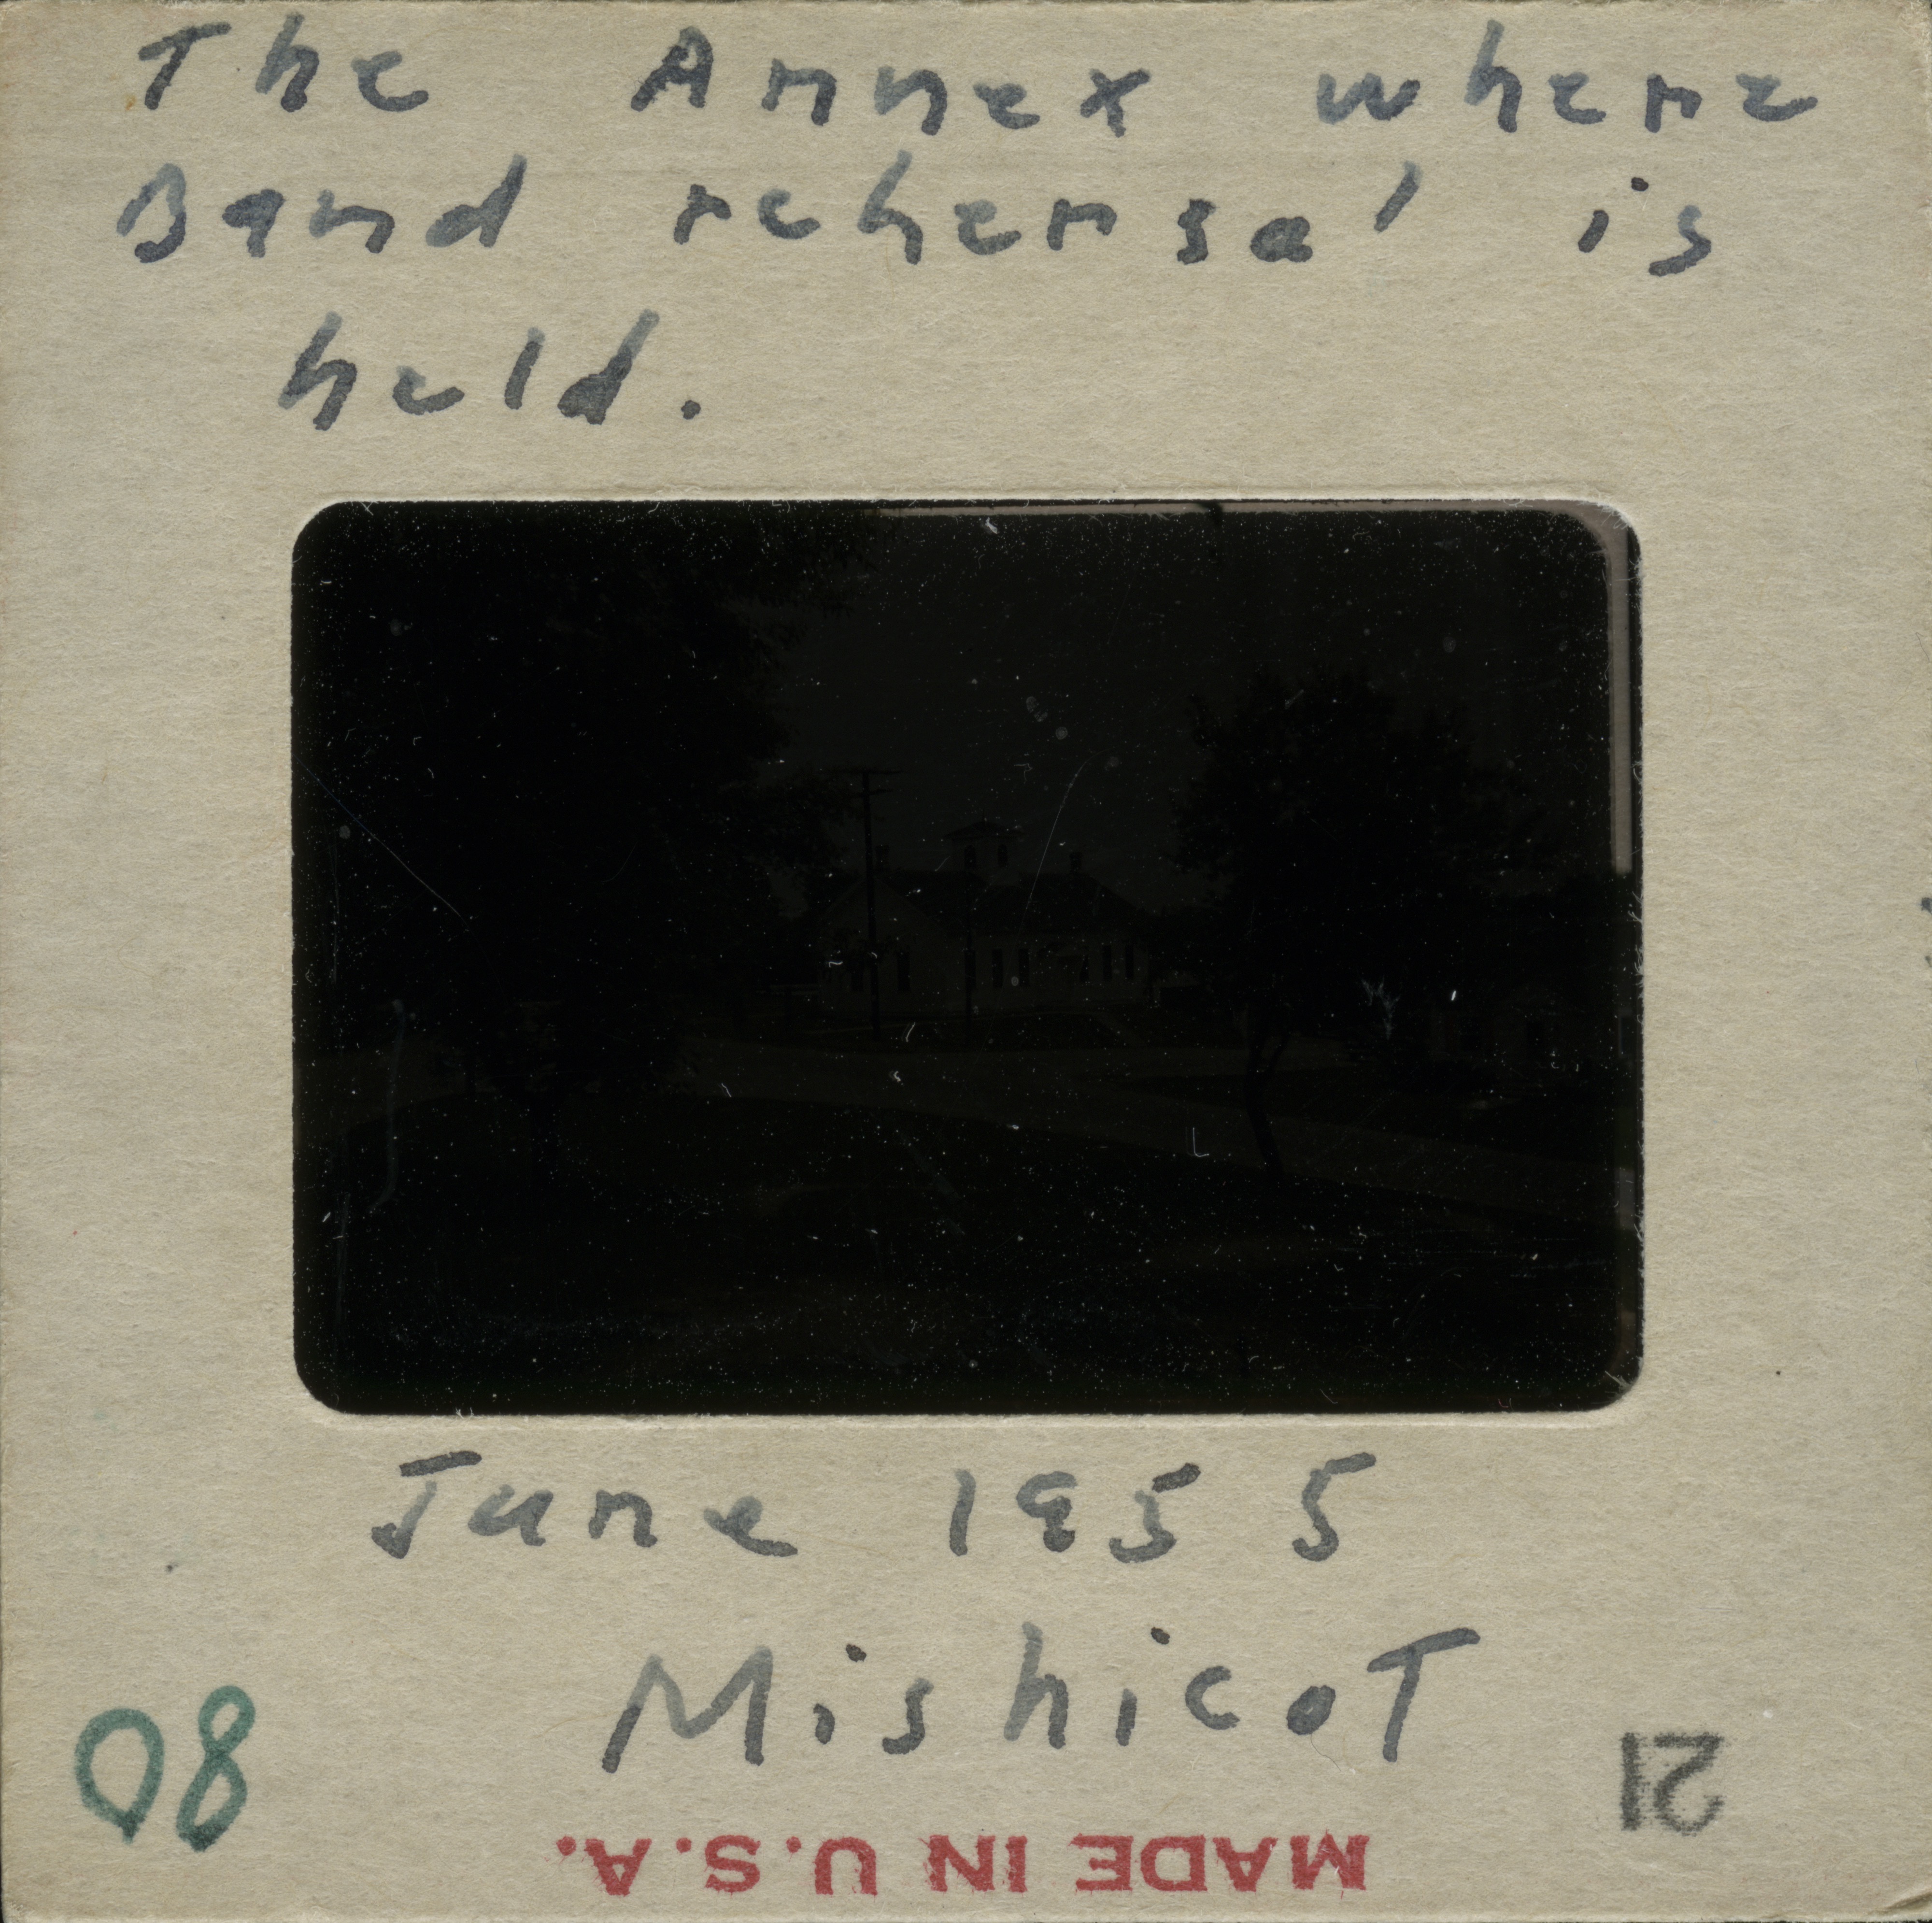 The Annex where
Band rehersal is
held.
June 1955
Mishicot
08
21
MADE IN U.S.A.